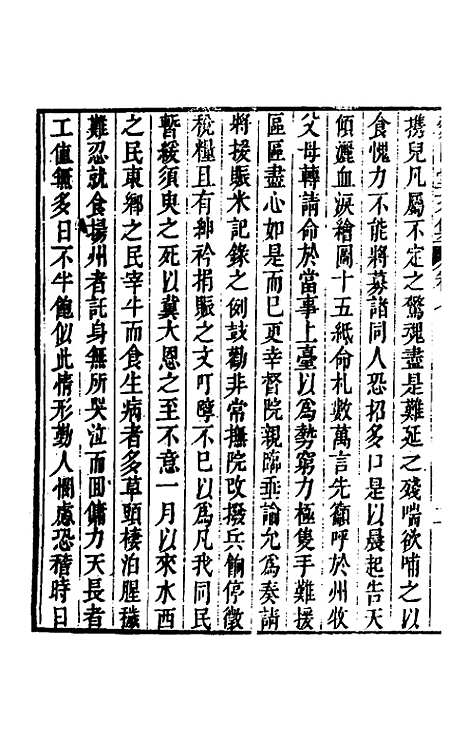 攜兒凡屬不定之驚魂盡是難延之殘喘欲哺之以
食愧力不能將募諸同人恐招多口是以晨起告天
傾灑血淚繪圖十五紙命札數萬言先籲呼於州牧
父母轉請命於當事上臺以為勢窮力極隻手難援
區區盡心如是而已更幸督院親臨垂論允為奏請
將援賑米記錄之例鼓勸非常撫院改撥兵餉停徵
稅糧且有紳衿捐賑之文叮嚀不巳以為凡我同民
暫緩須臾之死以冀大恩之至不意一月以來水西
之民東鄉之民宰牛而食生病者多草頭棲泊腥穢
難忍就食揚州者託身無所哭泣而回傭力天長者
工值無多日不半飽似此情形勤人惻慮恐稽時日